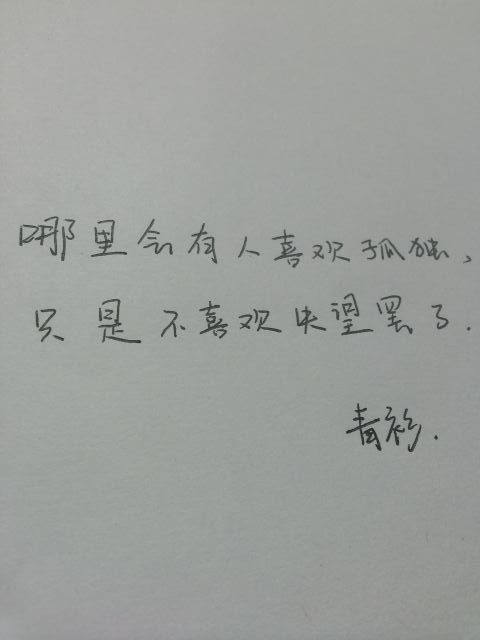 哪里会有人喜欢孤独，
只是不喜欢失望罢了.
青衫.